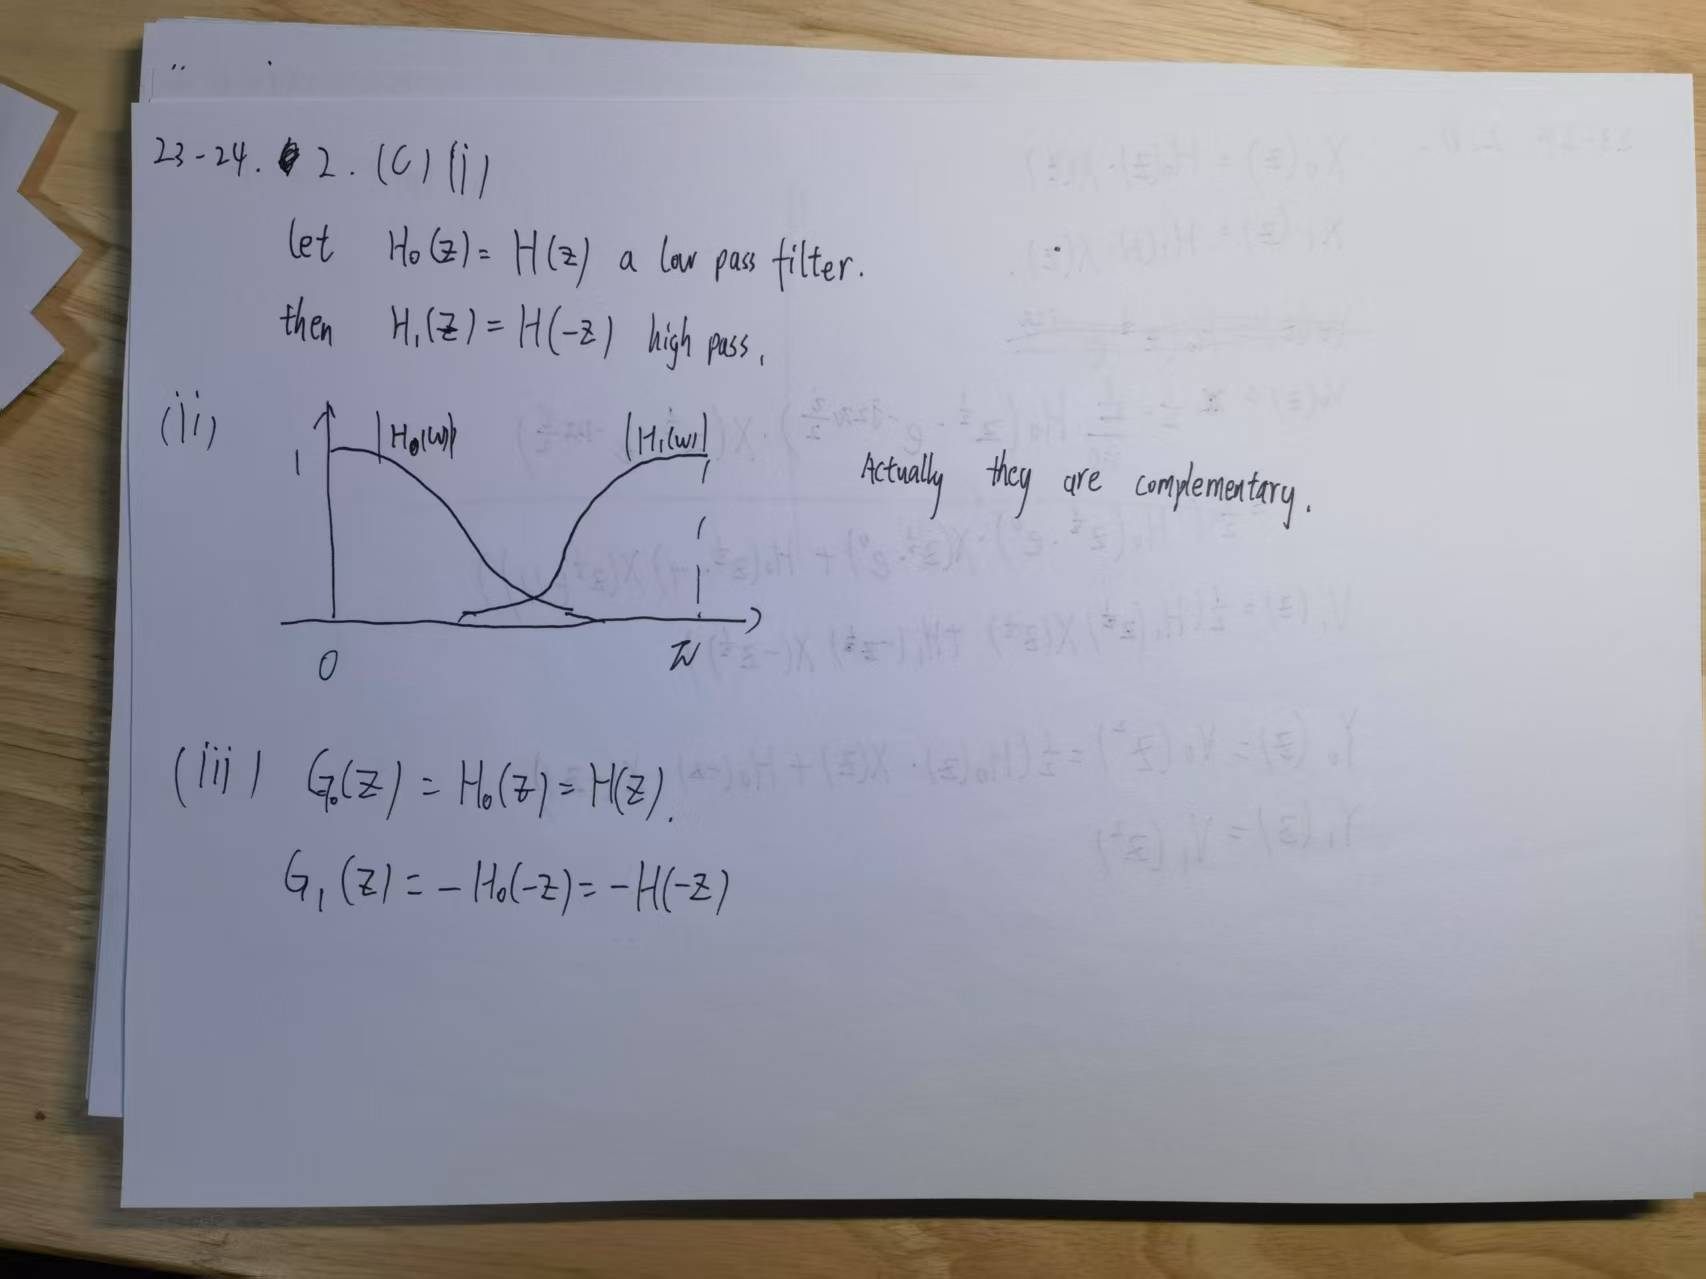 23-24. 2. (C) (i)
let H₀(z) = H(z) a low pass filter.
then H₁(z) = H(-z) high pass.
(ii)
1 |H₀(ω)| |H₁(ω)|
Actually they are complementary.
0 π
(iii) G₀(z) = H₀(z) = H(z).
G₁(z) = -H₀(-z) = -H(-z)